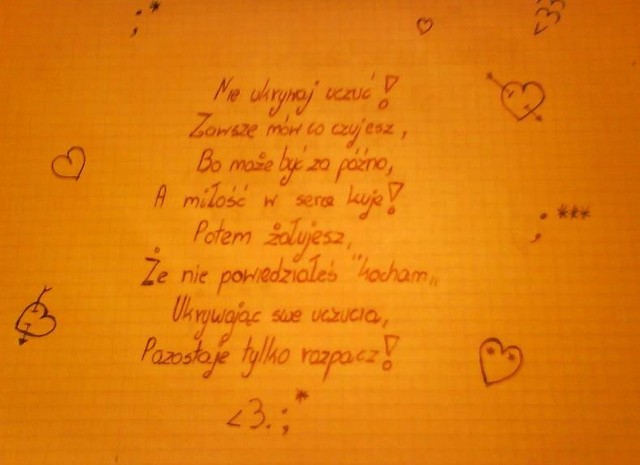 ;*
<3
Nie ukrywaj uczuć!
Zawsze mów co czujesz,
Bo może być za późno,
A miłość w serce kuje!
;***
Potem żałujesz,
Że nie powiedziałeś "kocham„
Ukrywając swe uczucia,
Pozostaje tylko rozpacz!
<3.;*